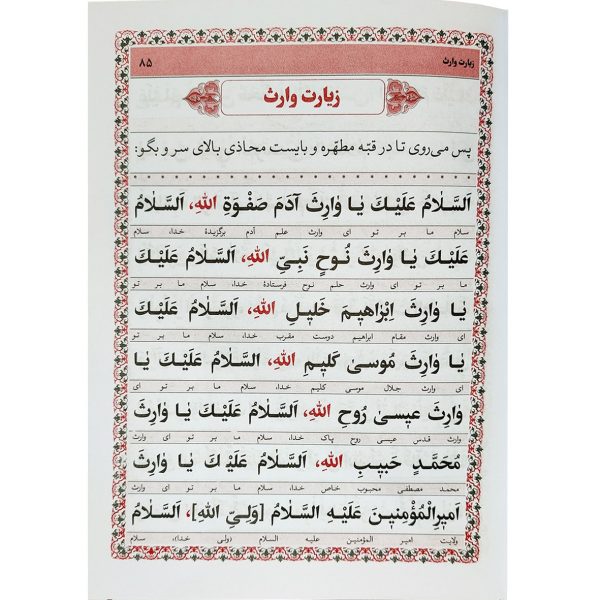 زیارت وارث
۸۵
زیارت وارث
پس می‌روی تا در قبّه مطهّره و بایست محاذی بالای سر و بگو:
اَلسَّلٰامُ عَلَیْكَ یٰا وٰارِثَ آدَمَ صَفْوَةِ اللهِ، اَلسَّلٰامُ
سلام ما بر تو ای وارث علم آدم برگزیدهٔ خدا، سلام
عَلَیْكَ یٰا وٰارِثَ نُوحٍ نَبِیِّ اللهِ، اَلسَّلٰامُ عَلَیْكَ
ما بر تو ای وارث حلم نوح فرستادهٔ خدا، سلام ما بر تو
یٰا وٰارِثَ اِبْرٰاهیمَ خَلیلِ اللهِ، اَلسَّلٰامُ عَلَیْكَ
ای وارث مقام ابراهیم دوست مقرب خدا، سلام ما بر تو
یٰا وٰارِثَ مُوسیٰ کَلیمِ اللهِ، اَلسَّلٰامُ عَلَیْكَ یٰا
ای وارث جلال موسی کلیم خدا، سلام ما بر تو ای
وٰارِثَ عیسیٰ رُوحِ اللهِ، اَلسَّلٰامُ عَلَیْكَ یٰا وٰارِثَ
وارث قدس عیسی روح پاک خدا، سلام ما بر تو ای وارث
مُحَمَّدٍ حَبیبِ اللهِ، اَلسَّلٰامُ عَلَیْكَ یٰا وٰارِثَ
محمد مصطفی محبوب خاص خدا، سلام ما بر تو ای وارث
اَمیرِالْمُؤْمِنینَ عَلَیْهِ السَّلٰامُ [وَلِیِّ اللهِ]، اَلسَّلٰامُ
ولایت امیر المؤمنین علیه السلام (ولی خدا)، سلام